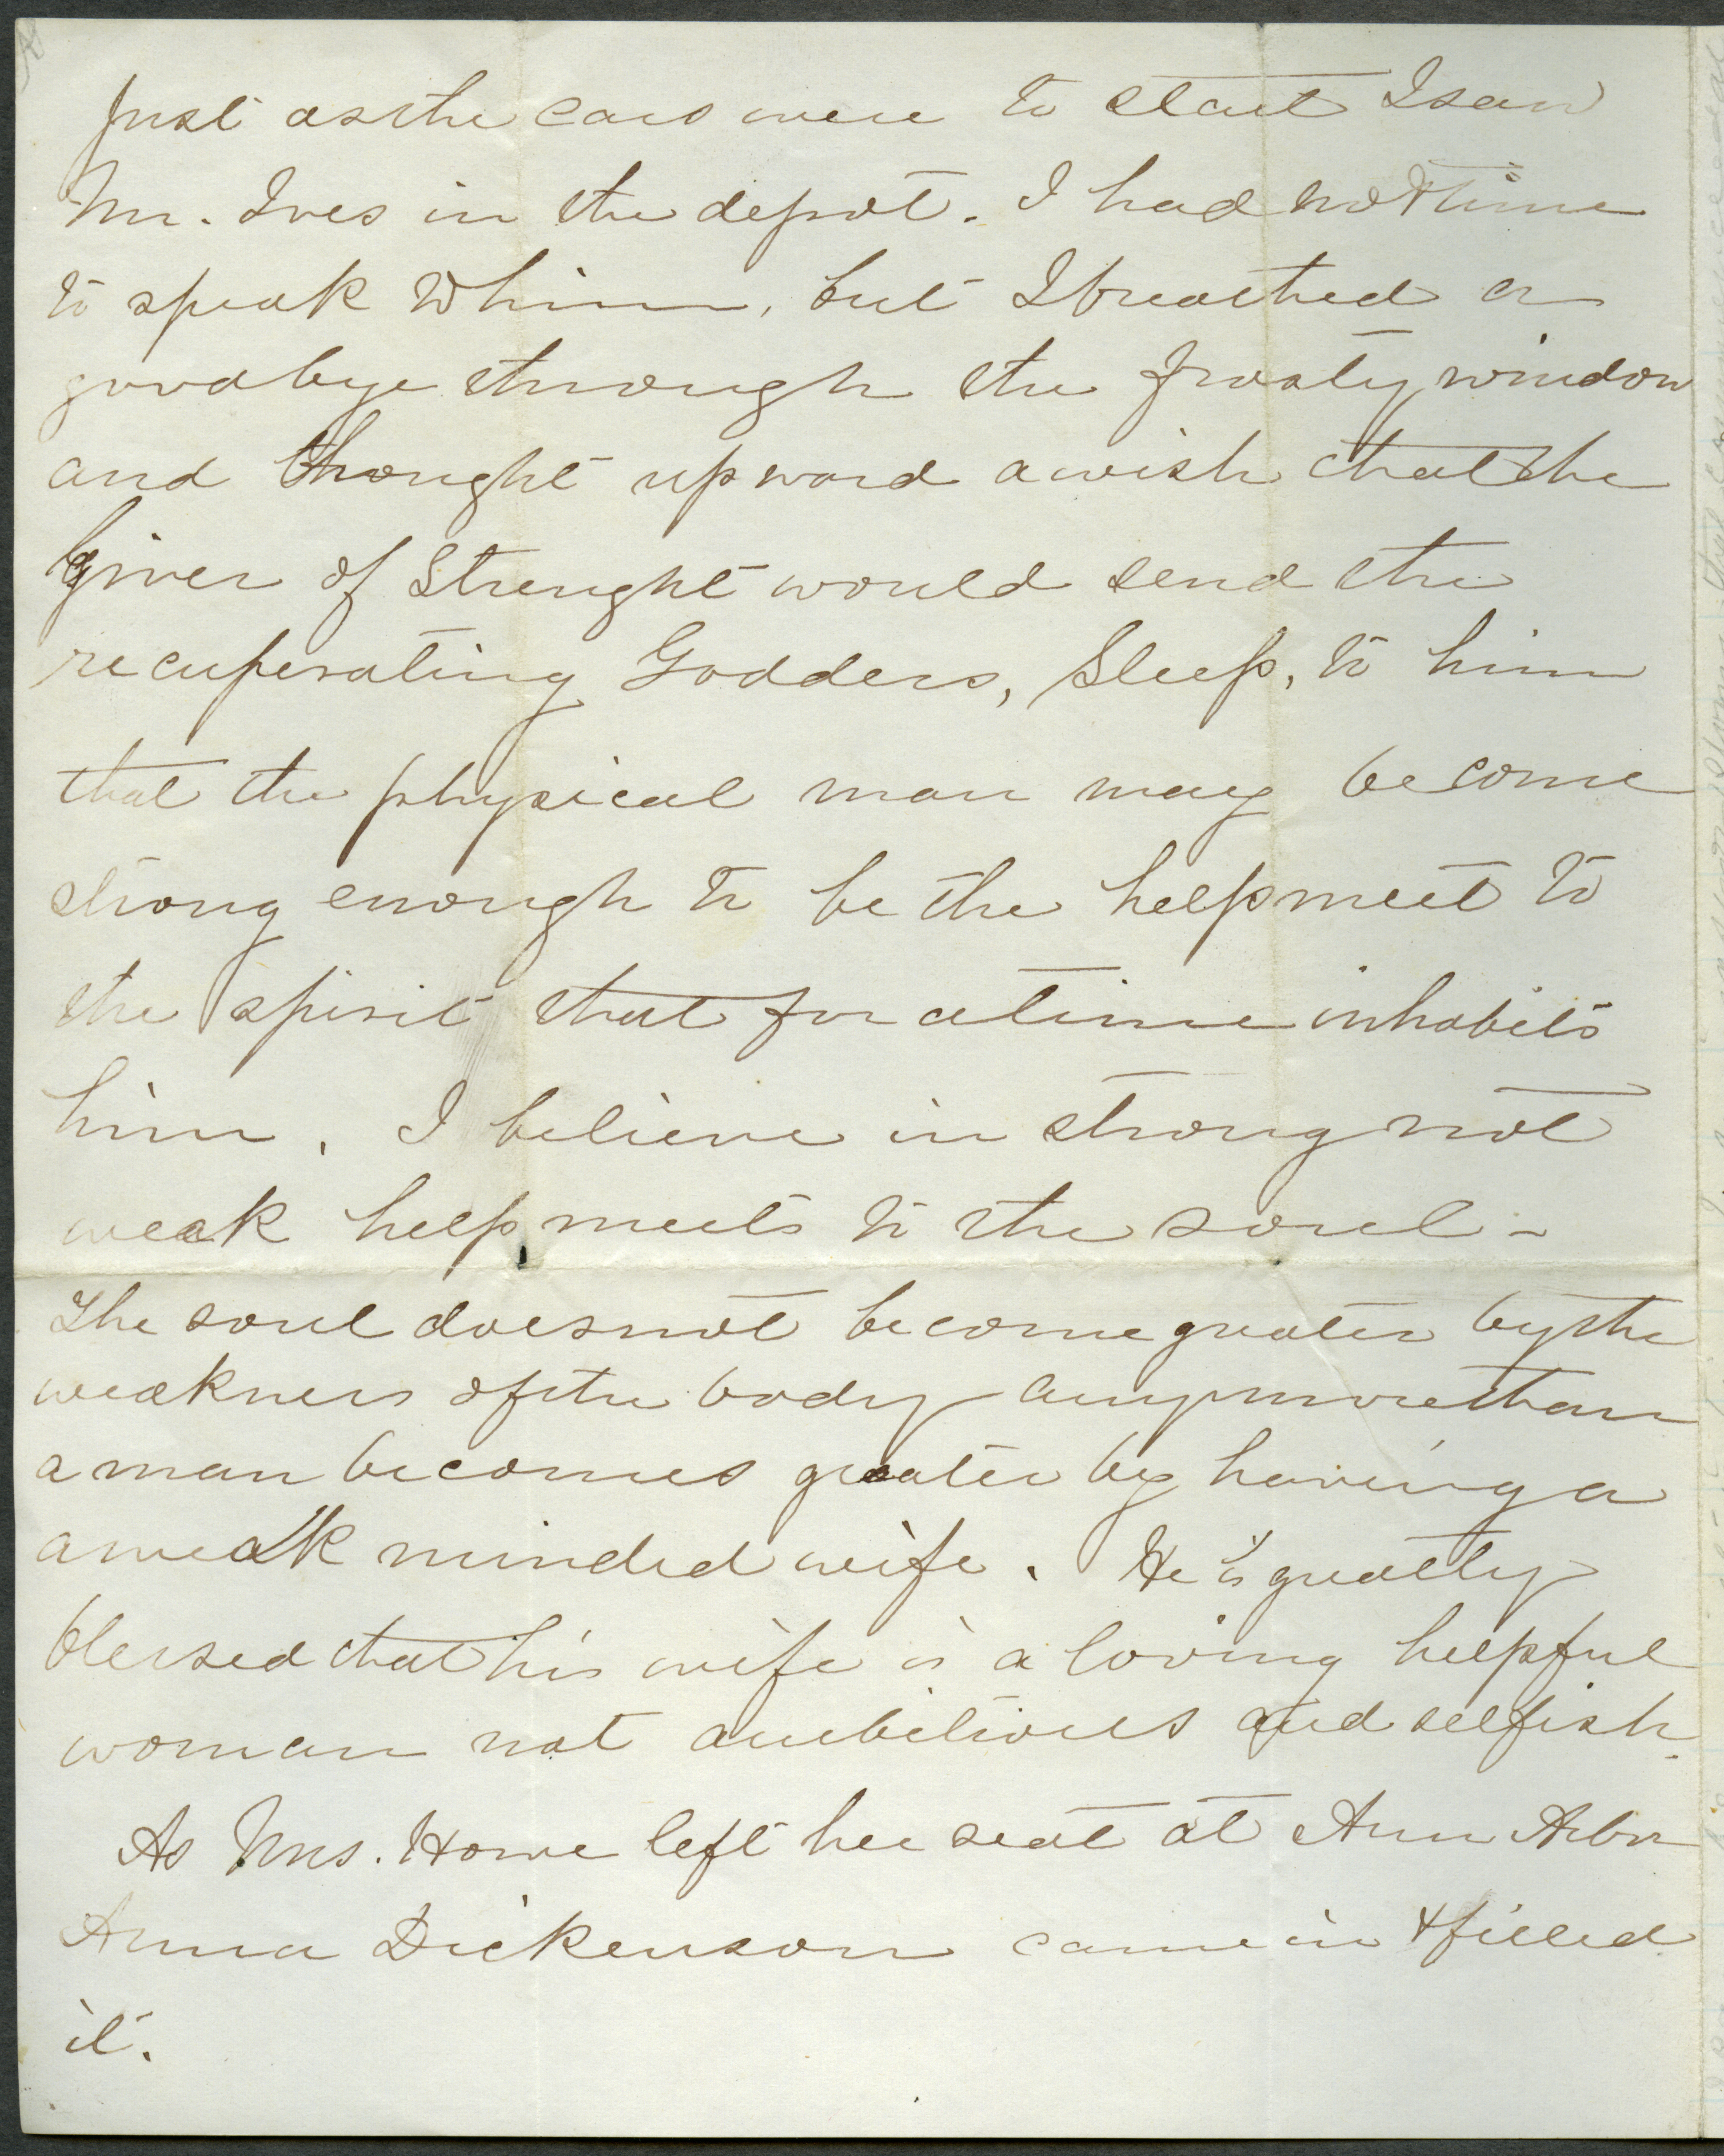 Just as the cars were to start I saw
Mr. Ives in the depot. I had not time
to speak to him, but I breathed a
goodbye through the frosty window
and thought upward a wish that the
giver of Strenght would send the
recuperating Goddess, Sleep, to him
that the physical man may become
strong enough to be the helpmeet to
the spirit that for a time inhabits
him. I believe in strong not
weak helpmeets to the soul -
The soul does not become greater by the
weakness of the body any more than
a man becomes greater by having a
a weak minded wife. He is greatly
blessed that his wife is a loving helpful
woman not ambitious and selfish.
As Mrs. Howe left her seat at Ann Arbor
Anna Dickenson came in & filled
it.